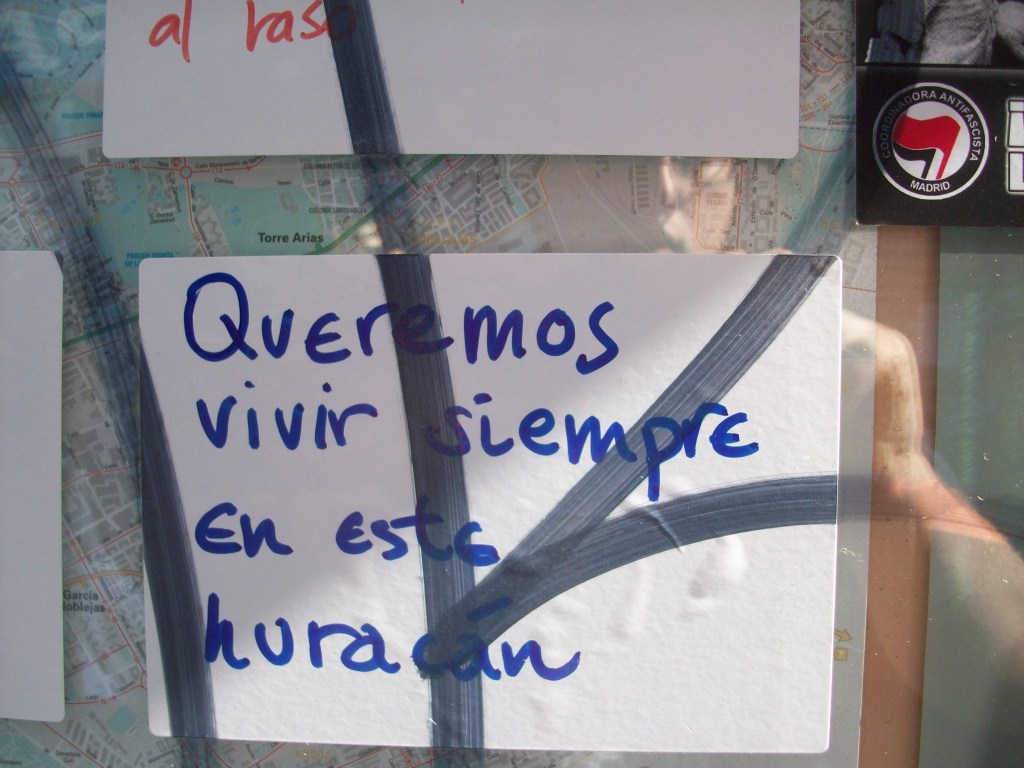 al raso
COORDINADORA ANTIFASCISTA
MADRID
Torre Arias
Queremos
vivir siempre
en este
huracán
García